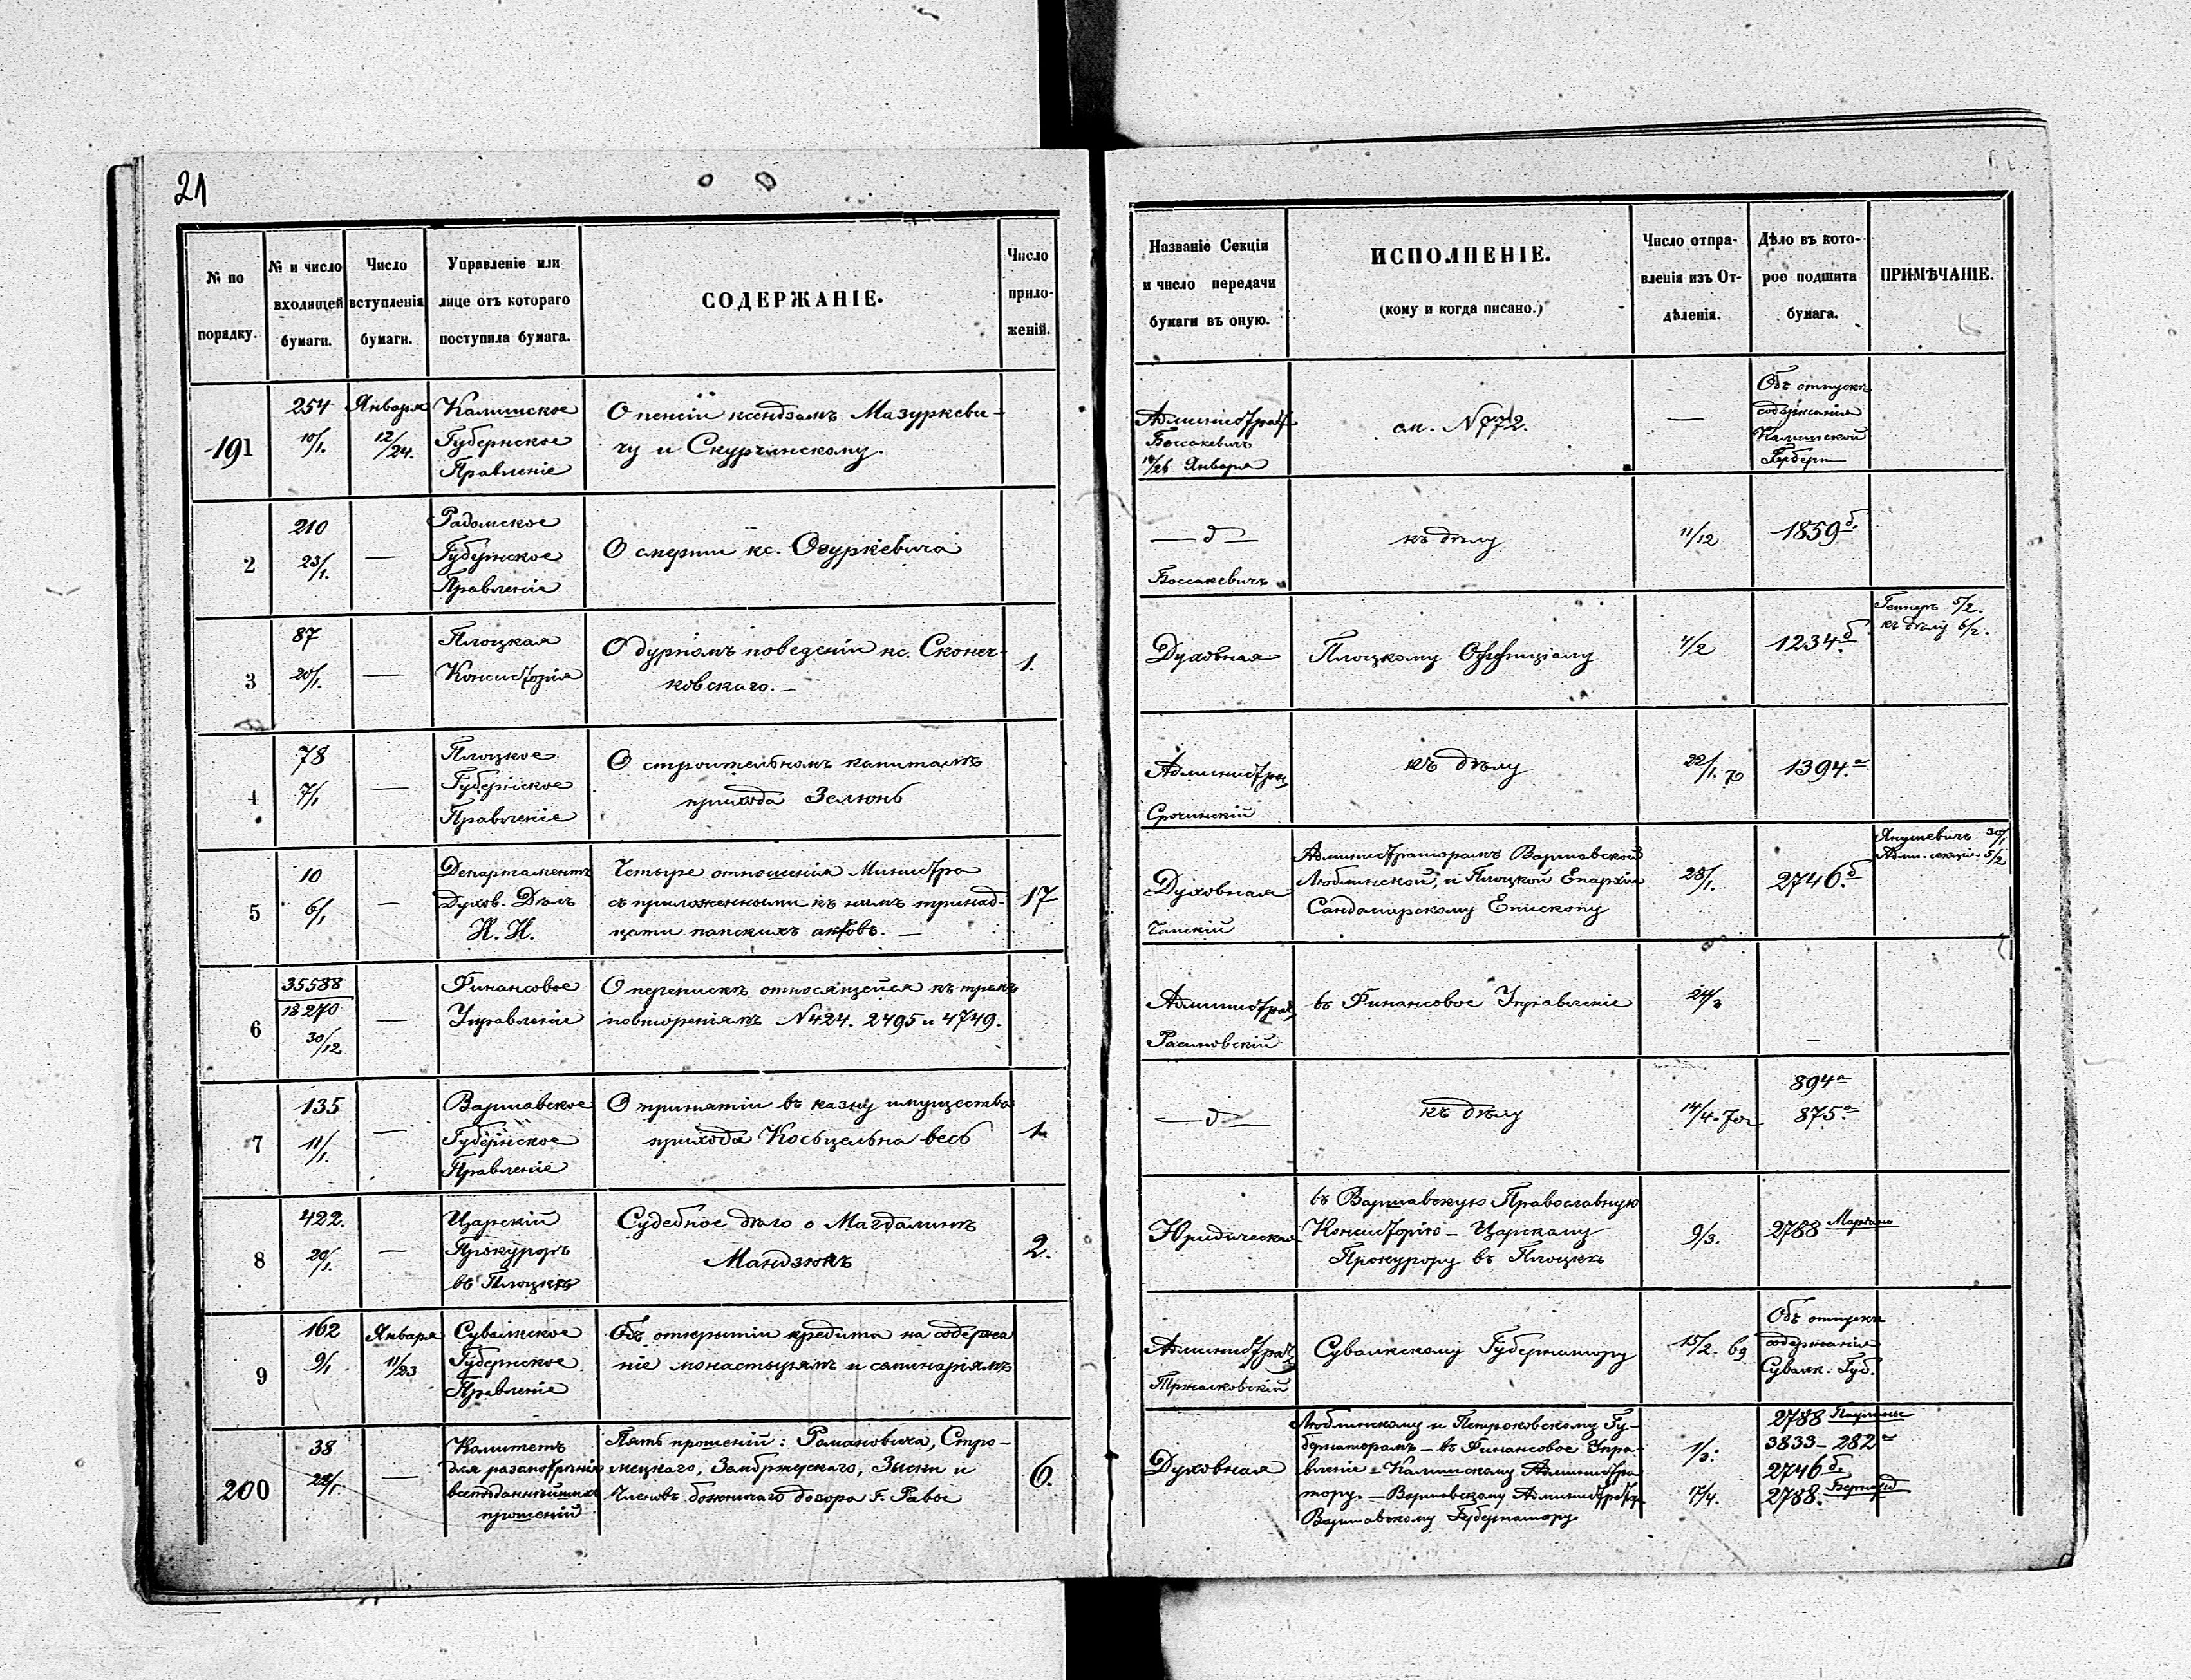 21
№ по порядку.
№ и число входящей бумаги.
Число вступленія бумаги.
Управленіе или лице отъ котораго поступила бумага.
СОДЕРЖАНІЕ.
Число приложеній.
Названіе Секціи и число передачи бумаги въ оную.
ИСПОЛНЕНІЕ.
(кому и когда писано.)
Число отпра-
вленія изъ От-
дѣленія.
Дѣло въ кото-
рое подшита
бумага.
ПРИМѢЧАНІЕ.
191
254
10/1.
Января
12/24.
Калишское
Губернское
Правленіе
О пенсіи ксендзамъ Мазуркеви-
чу и Скурчинскому.
Администрат
Боссакевичъ
14/26 Января
см. N 772.
—
Объ отпускѣ
содержанія
Калишской
Губерн
2
210
23/1.
—
Радомское
Губернское
Правленіе
О смерти кс. Озуркевича
— д —
Боссакевичъ
къ дѣлу
11/12
1859 б.
3
87
20/1.
—
Плоцкая
Консисторія
О дурномъ поведеніи кс. Сконеч-
ковскаго. —
1.
Духовная
Плоцкому Оффиціалу
4/2
1234 б.
5/2.
къ дѣлу 6/2.
4
78
7/1
—
Плоцкое
Губернское
Правленіе
О строительномъ капиталѣ
прихода Зелюнь
Администра
Срочинскій
къ дѣлу
22/1. 70
1394. а
5
10
6/1
—
Департаментъ
Духов. Дѣлъ
И. И.
Четыре отношенія Министра
съ приложенными къ нимъ тринад-
цати папскихъ актовъ. —
17
Духовная
Чапскій
Администраторамъ Варшавской
Люблинской, и Плоцкой Епархіи
Сандомирскому Епископу
28/1.
2746. б
Янушевичъ 30/1
Адм. секція 5/2
6
35588
18270
30/12
—
Финансовое
Управленіе
О перепискѣ относящейся къ тремъ
повтореніямъ N 424. 2495 и 4749.
Администрат,
Расиновскій
въ Финансовое Управленіе
24/3
—
7
135
11/1.
—
Варшавское
Губернское
Правленіе
О принятіи въ казну имущества
прихода Косьцельна весь
1.
— д —
къ дѣлу
14/4. 70
894 а
875. а
8
422.
20/1.
—
Царскій
Прокуроръ
въ Плоцкѣ
Судебное дѣло о Магдалинѣ
Мандзюкъ
2.
Юридическая
въ Варшавскую Православную
Консисторію — Царскому
Прокурору въ Плоцкѣ
9/3.
2788
9
162
9/1
Января
11/23
Сувалкское
Губернское
Правленіе
Объ открытіи кредита на содержа
ніе монастырямъ и семинаріямъ
Администрат
Тржасковскій
Сувалкскому Губернатору
15/2. 69
Объ отпускѣ
содержанія
Сувалк. Губ.
200
38
24/1
—
Комитетъ
для разсмотрѣнія
всеподданнѣйшихъ
прошеній
Пять прошеній: Романовича, Стро-
мецкаго, Замбржускаго, Зыски и
Членовъ божничаго дозора г. Равы
6.
Духовная
Люблинскому и Петроковскому Гу-
бернаторамъ — въ Финансовое Упра-
вленіе — Калишскому Администра
тору. — Варшавскому Администратору
Варшавскому Губернатору
1/3.
17/4.
2788 Паулины
3833 — 282 а
2746 б.
2788. Бернард